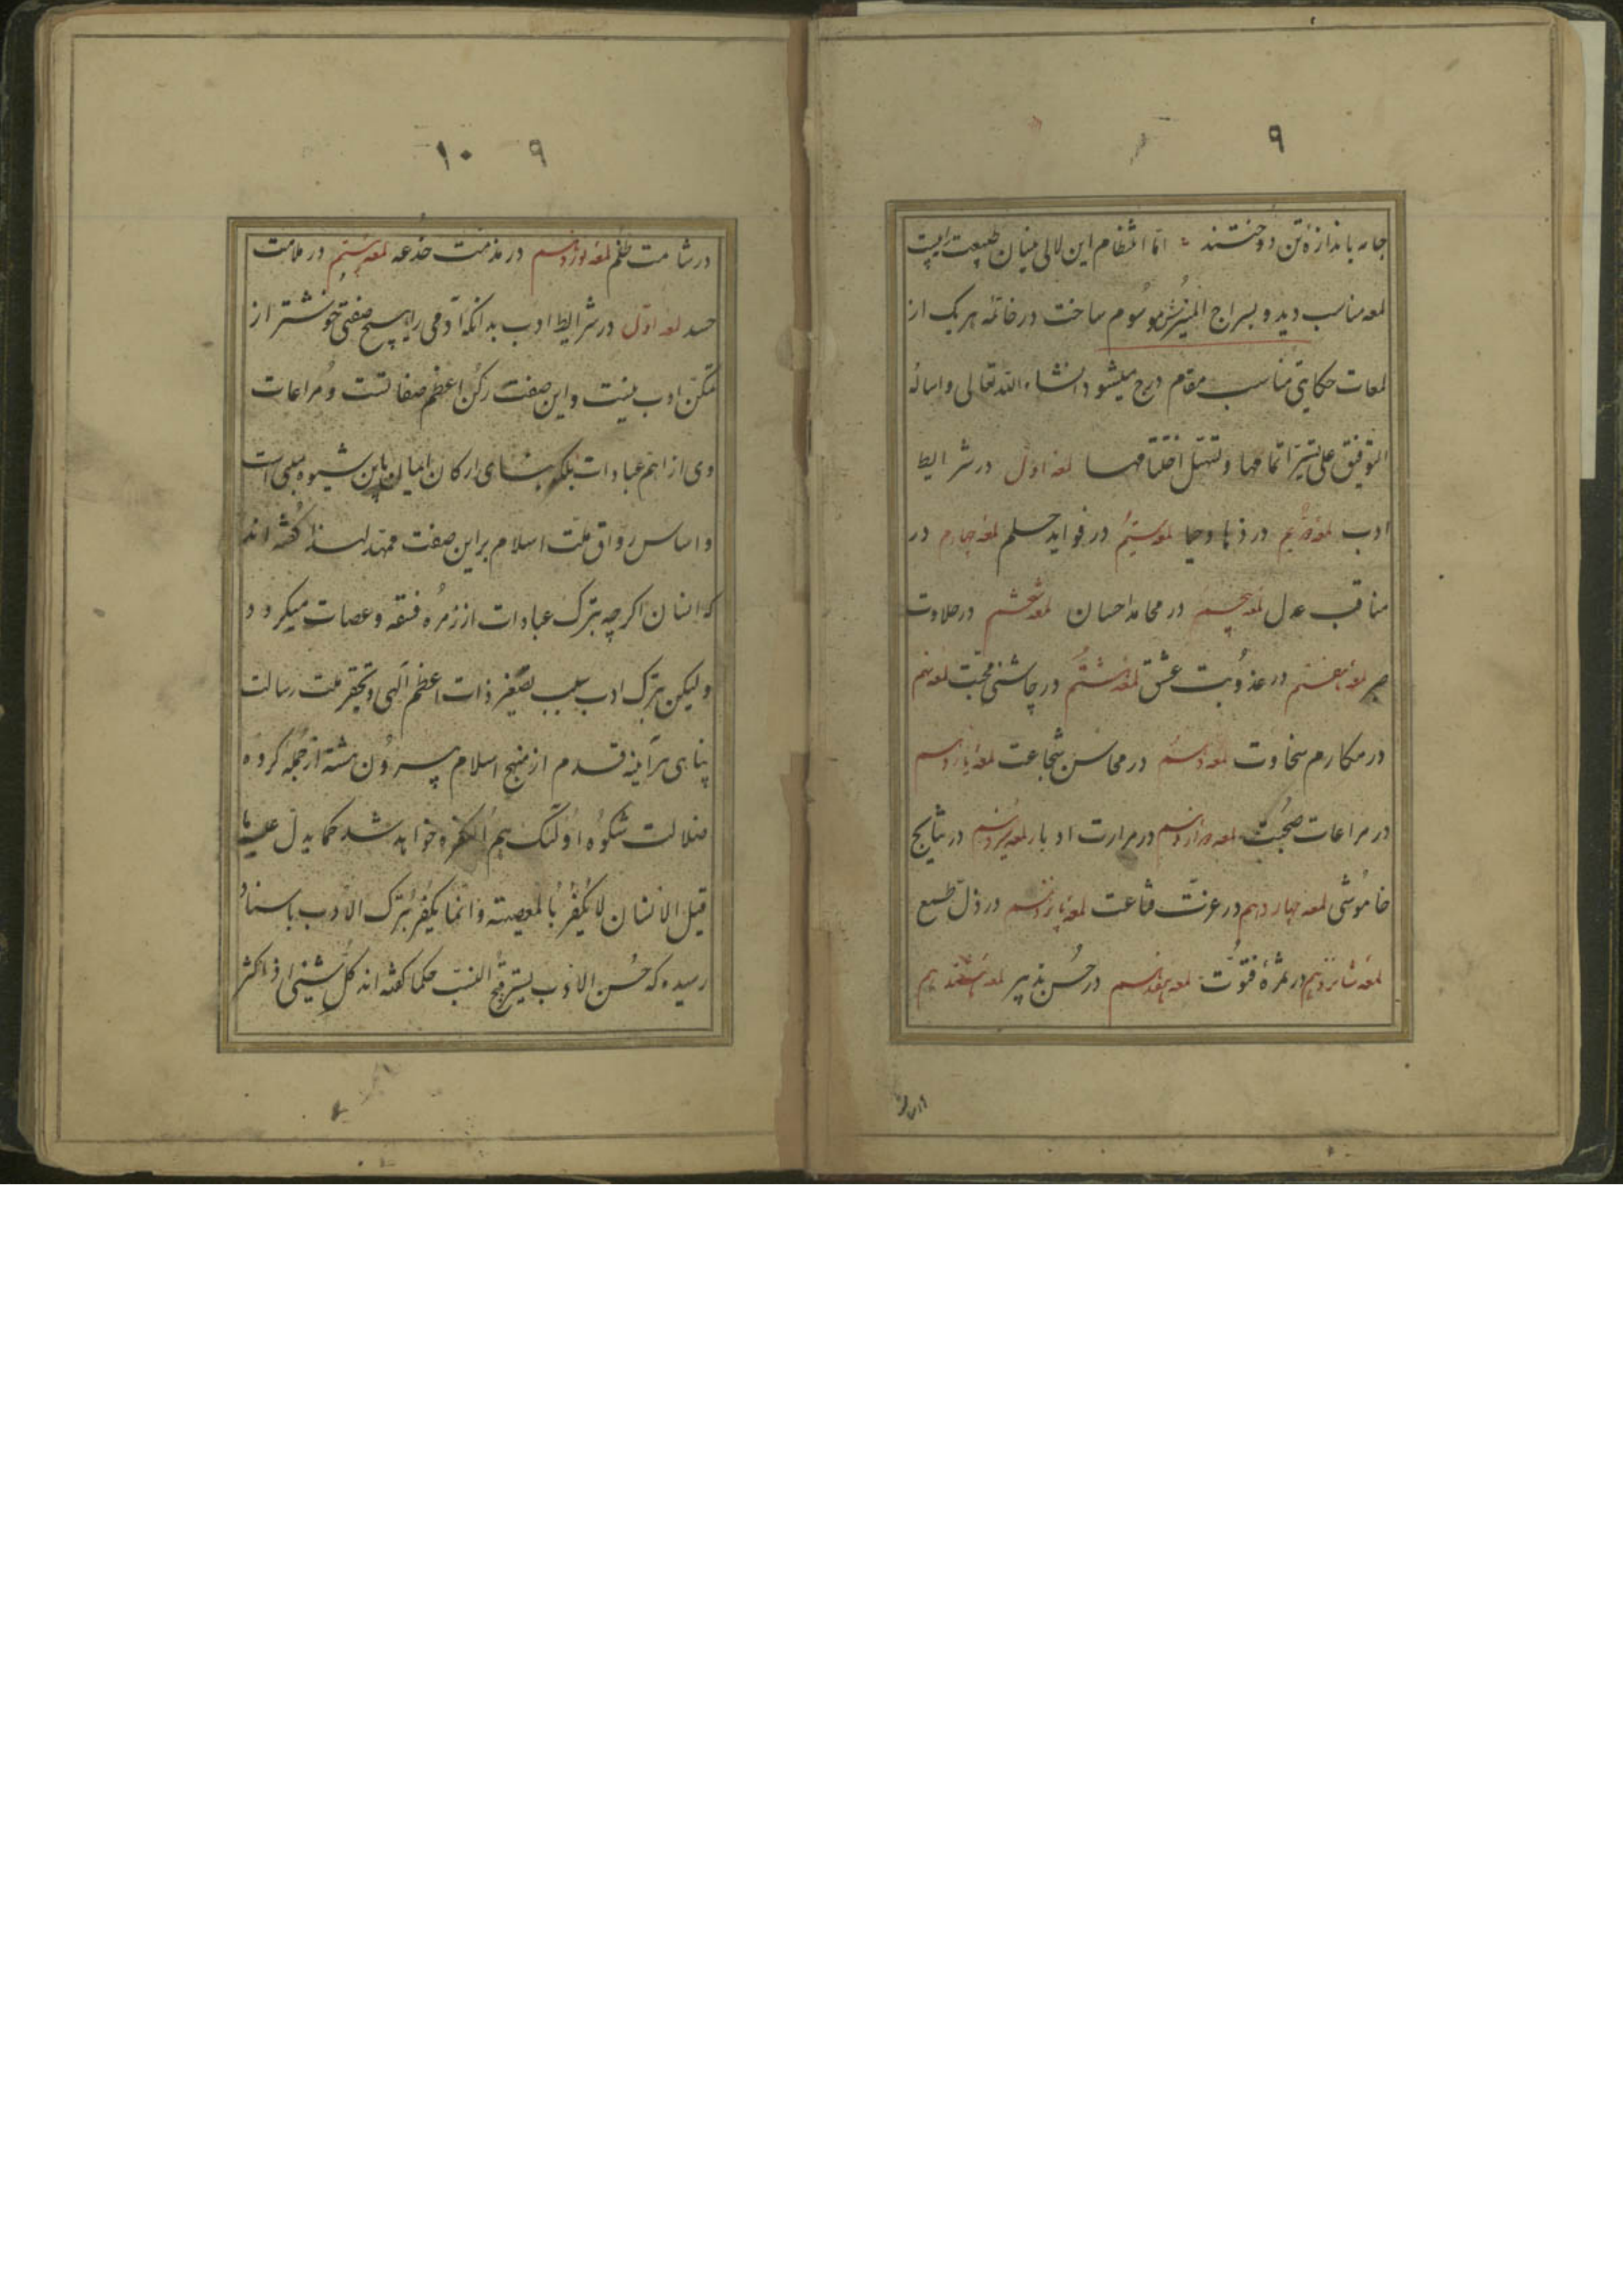 ۹
جامه باندازهٔ تن دوختند امّا انتظام این لالی بنیان طبیعت را بیست
لمعه مناسب دید و بسراج المنیرش موسوم ساخت در خاتمهٔ هر یک از
لمعات حکایتی مناسب مقام درج میشود انشاء الله تعالی و اسأله
التوفیق علی تیسّر اتمامها و تسهّل اختتامها لمعهٔ اوّل در شرایط
ادب لمعهٔ دویّم در ذهاوحیا لمعهٔ سیّم در فواید حلم لمعهٔ چهارم در
مناقب عدل لمعهٔ پنجم در محامد احسان لمعهٔ ششم در حلاوت
صبر لمعهٔ هفتم در عذوبت عشق لمعهٔ هشتم در چاشنی محبّت لمعهٔ نهم
در مکارم سخاوت لمعهٔ دهم در محاسن شجاعت لمعهٔ یازدهم
در مراعات صحبت لمعهٔ دوازدهم در مرارت ادبار لمعهٔ سیزدهم در نتایج
خاموشی لمعهٔ چهاردهم در عزّت قناعت لمعهٔ پانزدهم در ذلّ طمع
لمعهٔ شانزدهم در ثمرهٔ فتوّت لمعهٔ هفدهم در حسن تدبیر لمعهٔ هیجدهم
۹ ۱۰
در شامت ظلم لمعهٔ نوزدهم در مذمّت خدعه لمعهٔ بیستم در ملامت
حسد لمعهٔ اوّل در شرایط ادب بدانکه آدمی را هیچ صفتی خوشتر از
تمکّن ادب نیست و این صفت رکن اعظم صفاتست و مراعات
وی از اهمّ عبادات بلکه بنای ارکان ایمان باین شیوه مبنی است
و اساس رواق ملّت اسلام بر این صفت ممهّد لهذا گفته اند
که انسان اکرچه بترک عبادات از زمرهٔ فسقه و عصات میکردد
ولیکن بترک ادب بسبب تصغیر ذات اعظم آلهی و تحقیر ملت رسالت
پناهی هر آینه قدم از منهج اسلام بیرون هشته از جمله کروه
ضلالت شکوه اولئک هم الکفره خواهد شد کما یدلّ علیه ما
قیل الانسان لا یکفر بالمعصیته و انّما یکفر بترک الادب باسناد
رسیده که حسن الادب یستر قبح النسب حکما کفته اند کلّ شیئی اذا کثر